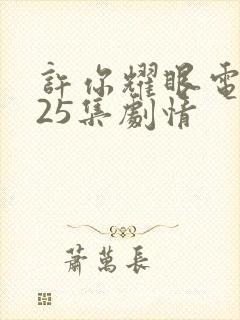 許你耀眼電
25集劇情
蕭萬長